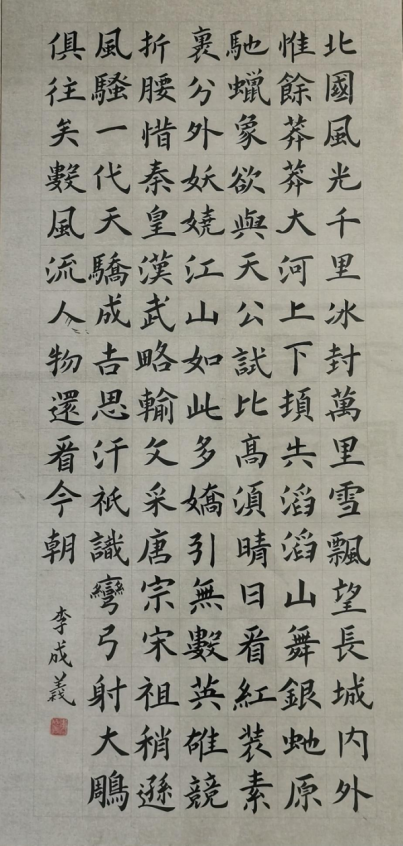 北國風光千里冰封萬里雪飄望長城内外
惟餘莽莽大河上下頓失滔滔山舞銀虵原
馳蠟象欲與天公試比高須晴日看紅装素
裹分外妖嬈江山如此多嬌引無數英雄競
折腰惜秦皇漢武略輸文采唐宗宋祖稍遜
風騷一代天驕成吉思汗祇識彎弓射大鵰
俱往矣數風流人物還看今朝
李成義